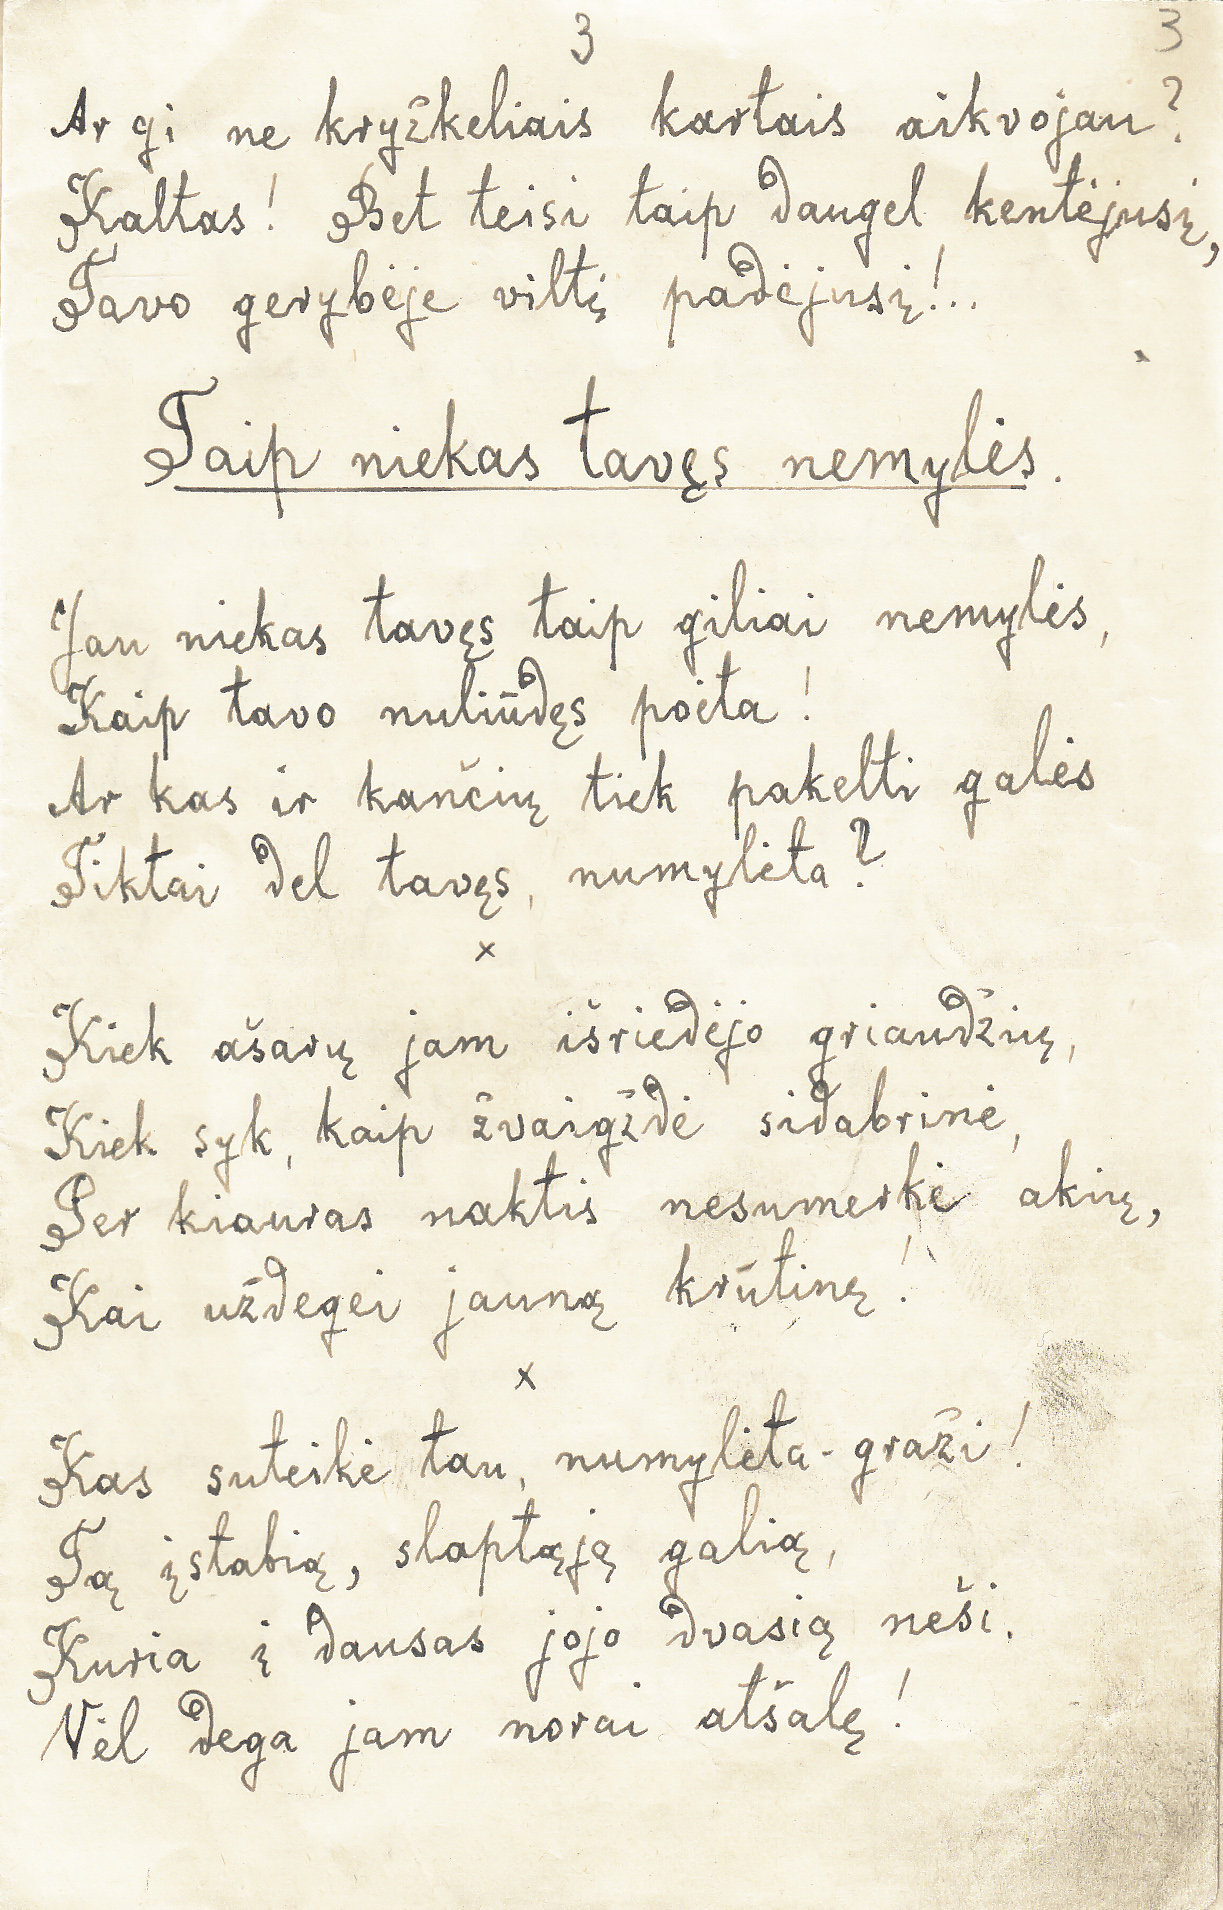 3 3
Ar gi ne kryžkeliais kartais aikvojau?
Kaltas! Bet teisi taip daugel kentėjusį,
Tavo gerybėje viltį padėjusį!..
Taip niekas tavęs nemylės.
Jau niekas tavęs taip giliai nemylės,
Kaip tavo nuliūdęs poėta!
Ar kas ir kančių tiek pakelti galės
Tiktai del tavęs, numylėta?
x
Kiek ašarų jam išriedėjo griaudžių,
Kiek syk, kaip žvaigždė sidabrinė,
Per kiauras naktis nesumerkė akių,
Kai uždegei jauną krūtinę!
x
Kas suteikė tau, numylėta-graži!
Tą įstabią, slaptąją galią,
Kuria į dausas jojo dvasią neši.
Vėl dega jam norai atšalę!